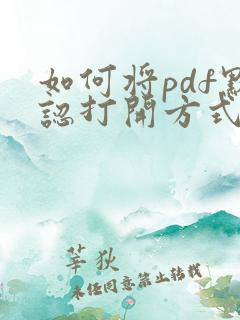 如何将pdf默
認打開方式
莘狄
未经同意禁止转载